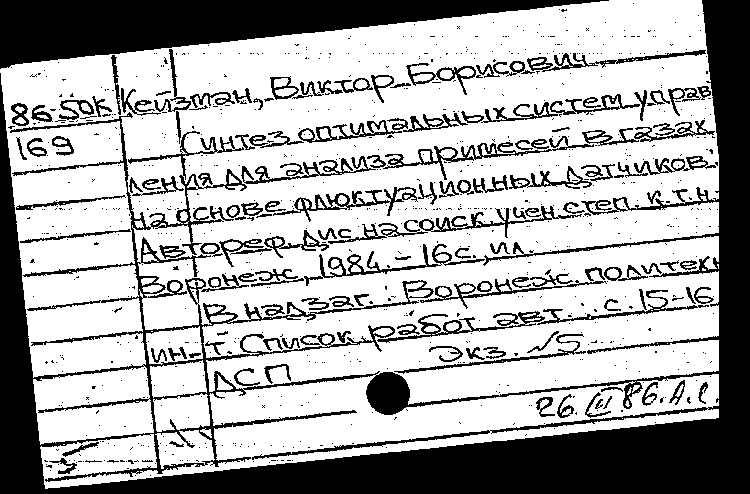 86-50К Кейзман, Виктор Борисович
169 Синтез оптимальных систем управ
ления для анализа примесей в газах
на основе флюктуационных датчиков:
Автореф. дис. на соиск. учен. степ. к.т.н.
Воронеж, 1984. - 16 с., ил.
В надзаг.: Воронеж. политехн
ин-т. Список работ авт.: с. 15-16
Экз. №5
ДСП
26.III 86. А.С.